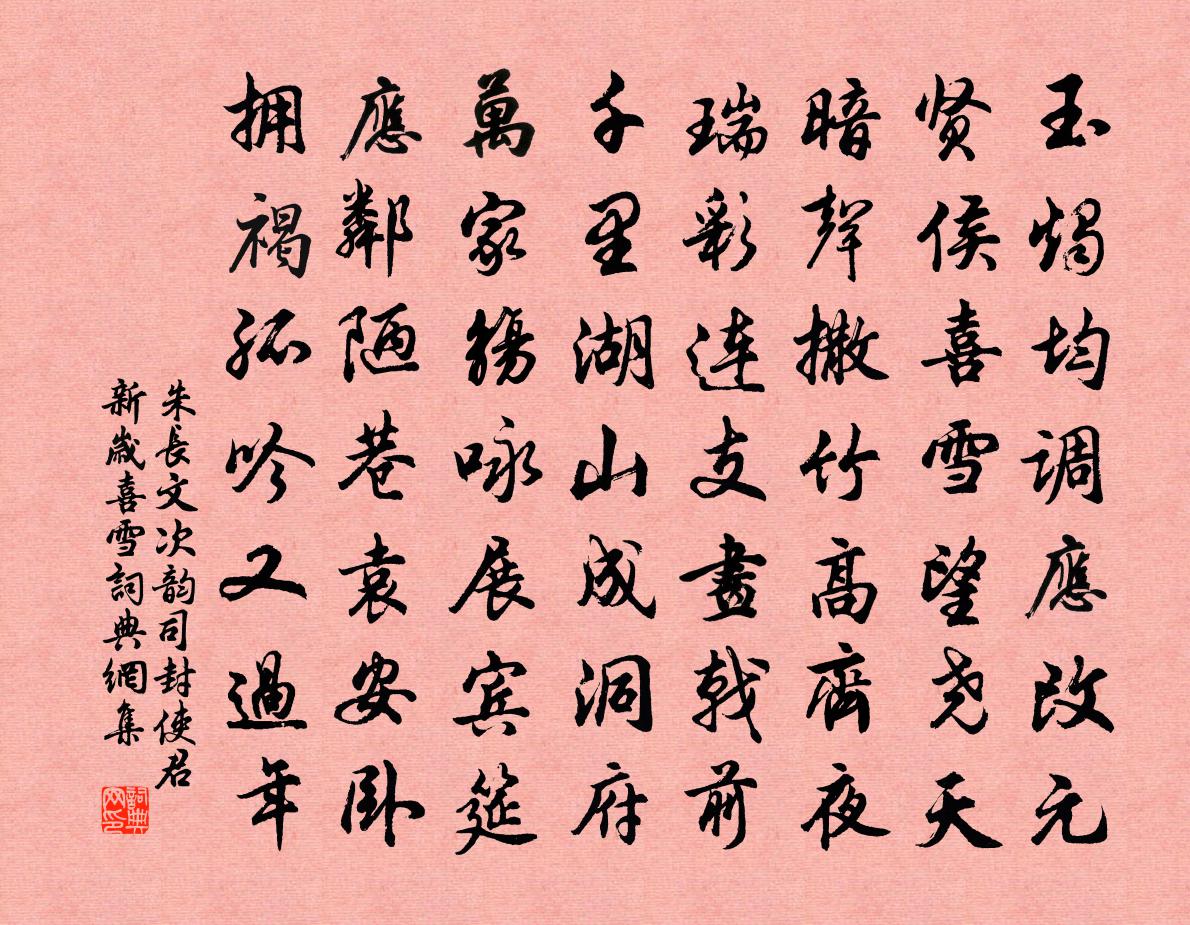 玉燭均調應改元
贤侯喜雪望尧天
暗聲撒竹高齋夜
瑞彩連支畫戟前
千里湖山成洞府
萬家觴咏展宾筵
應鄰陋巷袁安卧
拥褐孤吟又過年
朱長文次韵司封使君
新歲喜雪詞典網集
詞典网印